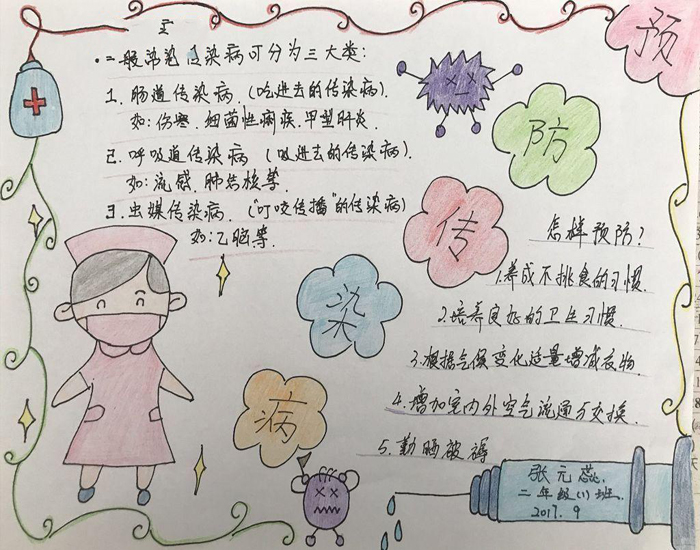 预
防
传
染
病
一般常见传染病可分为三大类:
1. 肠道传染病.(吃进去的传染病).
如:伤寒.细菌性痢疾.甲型肝炎.
2. 呼吸道传染病(吸进去的传染病).
如:流感.肺结核等.
3. 虫媒传染病.("叮咬传播"的传染病)
如:乙脑等.
怎样预防?
1.养成不挑食的习惯.
2.培养良好的卫生习惯.
3.根据气候变化适量增减衣物.
4.增加室内外空气流通与交换.
5.勤晒被褥
张元蕊.
二年级(1)班.
2017.9